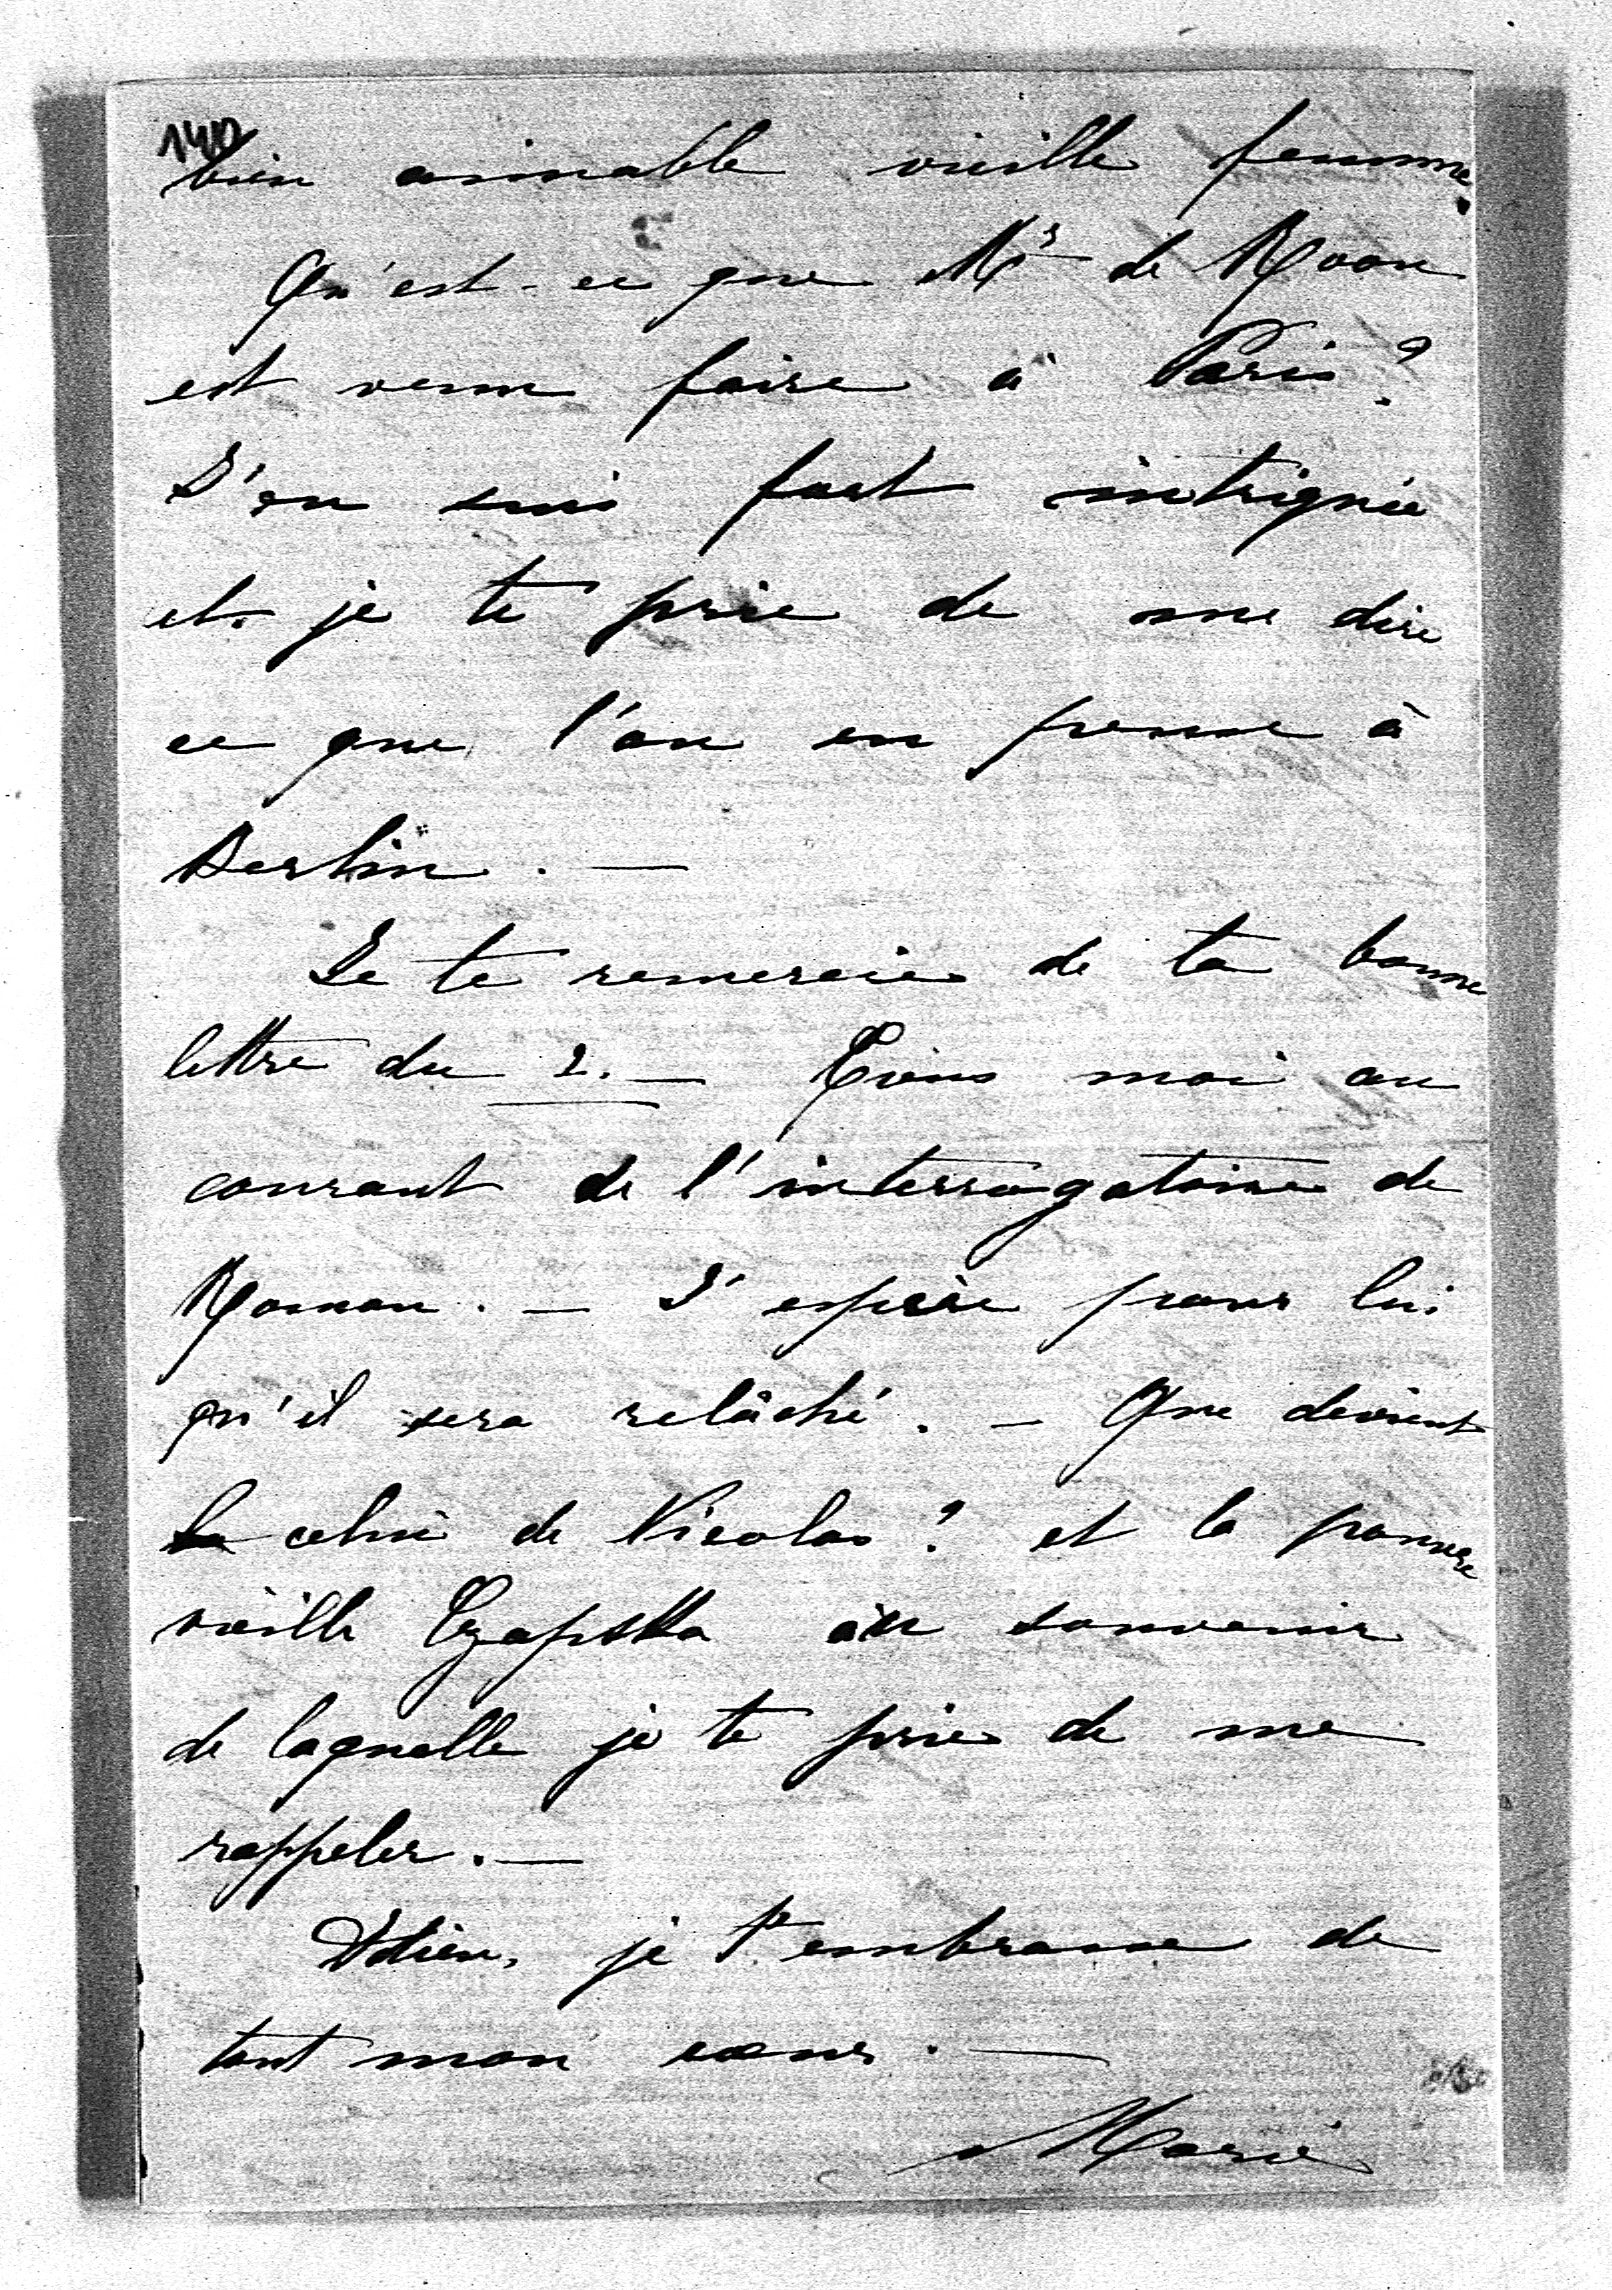 1412
bien aimable vieille femme.
Qu'est-ce que Mr de Roon
est venu faire à Paris?
J'en suis fort intriguée
et je te prie de me dire
ce que l'on en pense à
Berlin. —
Je te remercie de ta bonne
lettre du 2. — Tiens moi au
courant de l'interrogatoire de
Roman. — J'espère pour lui
qu'il sera relâché. — Que devient
celui de Nicolas? et la pauvre
vieille Czapska au souvenir
de laquelle je te prie de me
rappeler. —
Adieu, je t'embrasse de
tout mon cœur. —
Marie